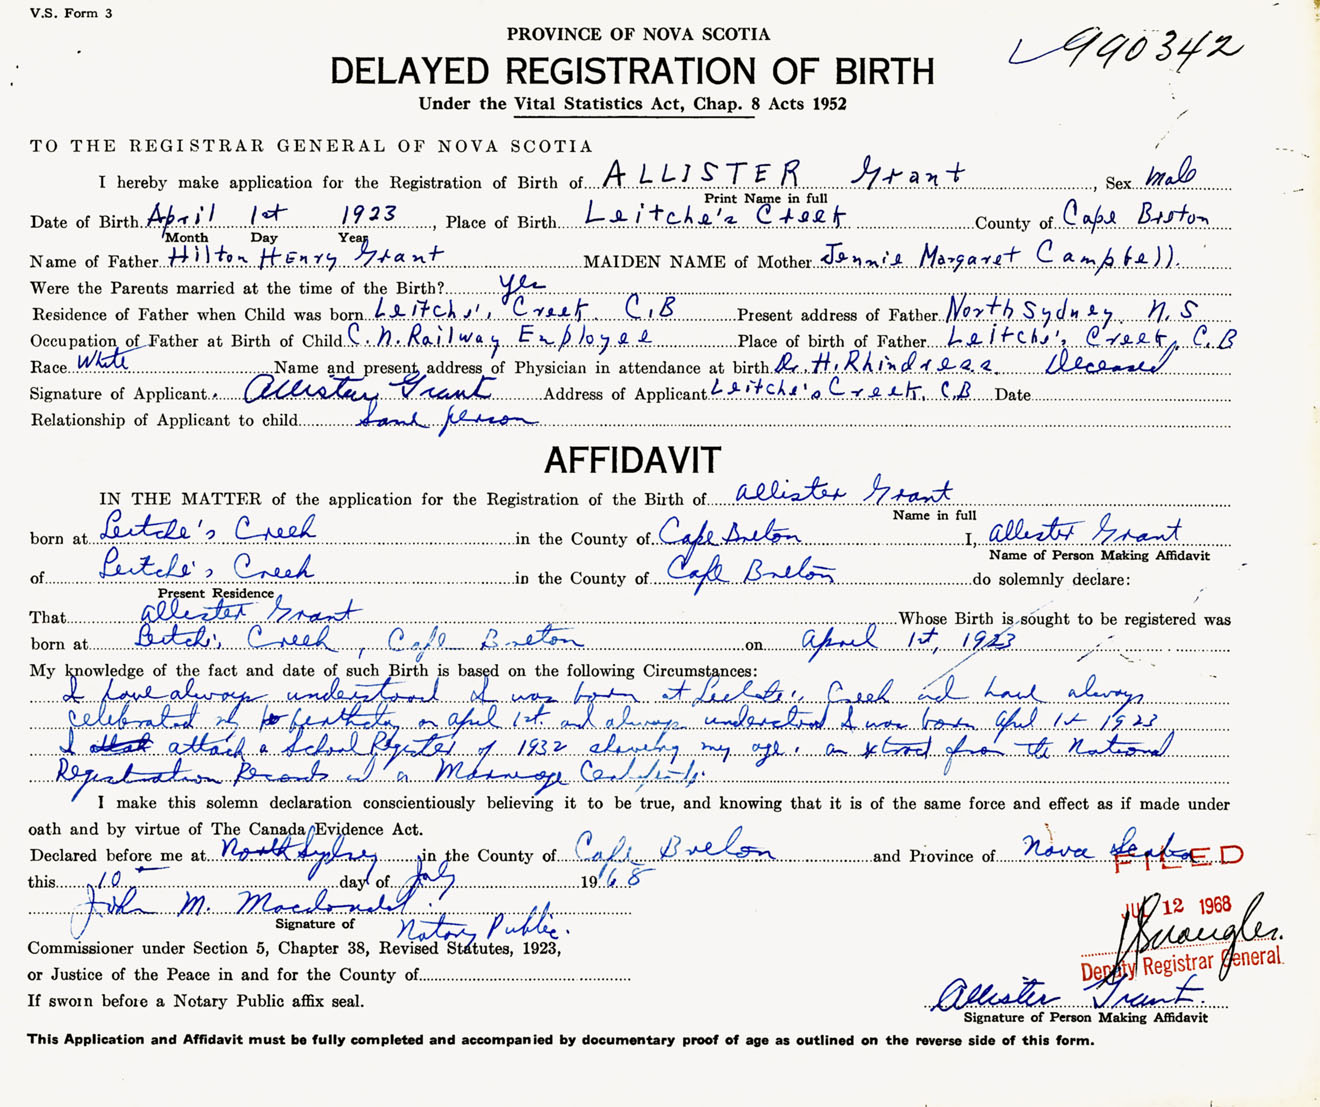 V.S. Form 3
PROVINCE OF NOVA SCOTIA
990342
DELAYED REGISTRATION OF BIRTH
Under the Vital Statistics Act, Chap. 8 Acts 1952
TO THE REGISTRAR GENERAL OF NOVA SCOTIA
I hereby make application for the Registration of Birth of ALLISTER Grant, Sex Male
Print Name in full
Date of Birth April 1st 1923, Place of Birth Leitche's Creek County of Cape Breton
Month Day Year
Name of Father Hilton Henry Grant MAIDEN NAME of Mother Jennie Margaret Campbell.
Were the Parents married at the time of the Birth? yes
Residence of Father when Child was born Leitche's Creek C.B Present address of Father North Sydney N.S
Occupation of Father at Birth of Child C.N. Railway Employee Place of birth of Father Leitche's Creek, C.B
Race White Name and present address of Physician in attendance at birth Dr. H. Rhindress Deceased
Signature of Applicant Allister Grant Address of Applicant Leitche's Creek, C.B Date
Relationship of Applicant to child Same person
AFFIDAVIT
IN THE MATTER of the application for the Registration of the Birth of Allister Grant
Name in full
born at Leitche's Creek in the County of Cape Breton I, Allister Grant
Name of Person Making Affidavit
of Leitche's Creek in the County of Cape Breton do solemnly declare:
Present Residence
That Allister Grant Whose Birth is sought to be registered was
born at Leitche's Creek, Cape Breton on April 1st, 1923
My knowledge of the fact and date of such Birth is based on the following Circumstances:
I have always understood I was born at Leitche's Creek and have always
celebrated my birthday on April 1st and always understood I was born April 1st 1923
I attach a School Register of 1932 showing my age, an extract from the National
Registration Records and a Marriage Certificate.
I make this solemn declaration conscientiously believing it to be true, and knowing that it is of the same force and effect as if made under
oath and by virtue of The Canada Evidence Act.
Declared before me at North Sydney in the County of Cape Breton and Province of Nova Scotia
FILED
this 10 day of July 1968
John M. Macdonald
JUL 12 1968
Signature of Notary Public.
Deputy Registrar General
Commissioner under Section 5, Chapter 38, Revised Statutes, 1923,
or Justice of the Peace in and for the County of
Allister Grant
If sworn before a Notary Public affix seal.
Signature of Person Making Affidavit
This Application and Affidavit must be fully completed and accompanied by documentary proof of age as outlined on the reverse side of this form.